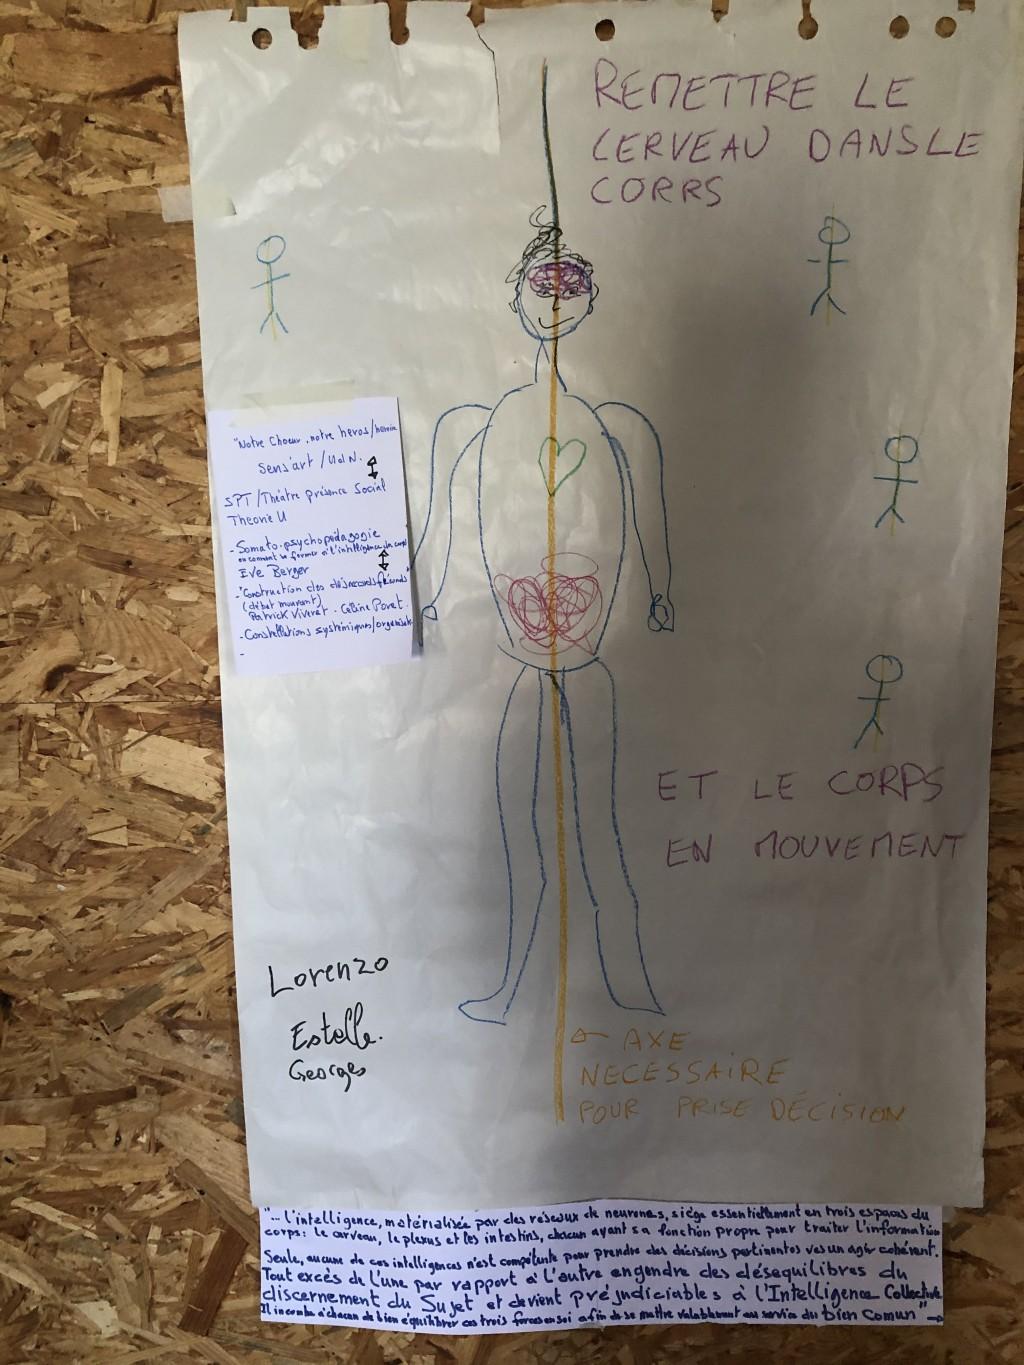 REMETTRE LE
CERVEAU DANS LE
CORRS
"Notre Choeur, notre héros/héroïne
Sens'art / UdN.
SPT/Théâtre présence Social
Théorie U
- Somato-psychopédagogie
ou comment se former à l'intelligence du corps
Eve Berger
- "Construction des désaccords féconds"
(débat mouvant)
Patrick Viveret - Celine Poret.
- Constellations systémiques/
-
ET LE CORPS
EN MOUVEMENT
Lorenzo
Estelle.
Georges
← AXE
NECESSAIRE
POUR PRISE DÉCISION
"... l'intelligence, matérialisée par des réseaux de neurones, siège essentiellement en trois espaces du
corps: le cerveau, le plexus et les intestins, chacun ayant sa fonction propre pour traiter l'information
Seule, aucune de ces intelligences n'est compétente pour prendre des décisions pertinentes agir cohérent.
Tout excés de l'une par rapport à l'autre engendre des déséquilibres du
discernement du Sujet et devient préjudiciables à l'Intelligence Collective
Il incombe à chacun de bien équilibrer ces trois forces en soi afin de se mettre valablement au service du bien Commun" →